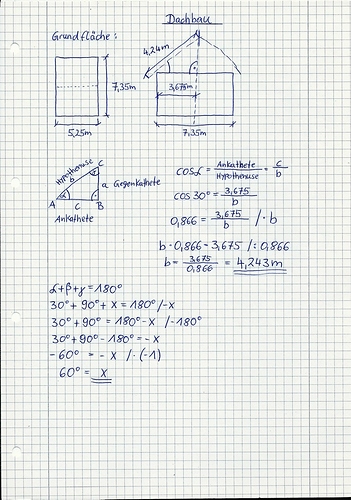 Dachbau
Grundfläche:
4,24m
7,35m
3,675m
5,25m
7,35m
Hypothenuse
b
C
γ
a Gegenkathete
α
A c B
Ankathete
cosα = Ankathete / Hypothenuse = c / b
cos 30° = 3,675 / b
0,866 = 3,675 / b /·b
b·0,866 = 3,675 /:0,866
b = 3,675 / 0,866 = 4,243m
α+β+γ = 180°
30° + 90° + x = 180° /-x
30° + 90° = 180° - x /-180°
30° + 90° - 180° = -x
-60° = -x /·(-1)
60° = x